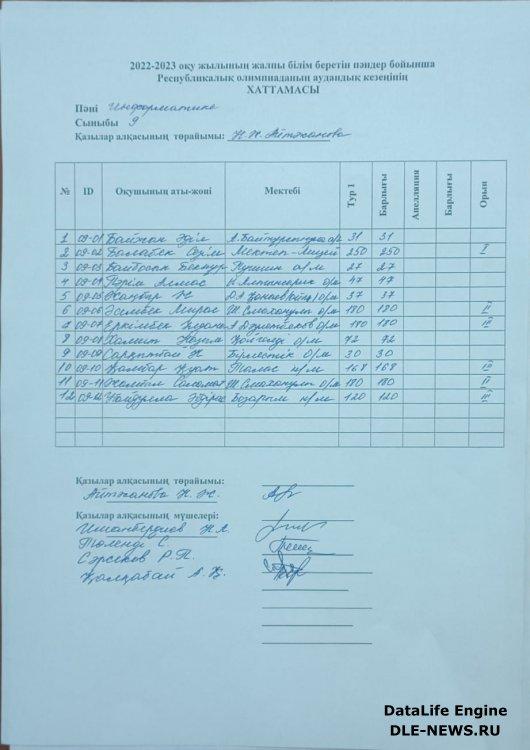 2022-2023 оқу жылының жалпы білім беретін пәндер бойынша
Республикалық олимпиаданың аудандық кезеңінің
ХАТТАМАСЫ
Пәні Информатика
Сыныбы 9
Қазылар алқасының төрайымы: Н.Ж. Айтжанова
№ ID Оқушының аты-жөні Мектебі Тур 1 Барлығы Апелляция Барлығы Орын
1 09-01 Байжан Әділ А. Байтұрсынұлы о/м 31 31
2 09-02 Мектеп-Лицей 250 250 I
3 09-03 о/м 27 27
4 09-04 Алмас о/м 47 47
5 09-05 Д.А. Қонаев о/м 37 37
6 09-06 Әсілбек Мирас Ш. Смаханұлы о/м 180 180 II
7 09-07 Еркінбек о/м 180 180 II
8 09-08 Хамит Назым о/м 72 72
9 09-09 Бірлестік о/м 30 30
10 09-10 Қамбар Қуат Талас н/м 168 168 III
11 09-11 Ш. Смаханұлы о/м 180 180 II
12 09-12 Бозарық н/м 120 120 III
Қазылар алқасының төрайымы:
Айтжанова Н. Ж.
Қазылар алқасының мүшелері:
Ишанбердиев Н.А.
Төленді С.
Сәрсеков Р.П.
Қалдабай А.Қ.
DataLife Engine
DLE-NEWS.RU